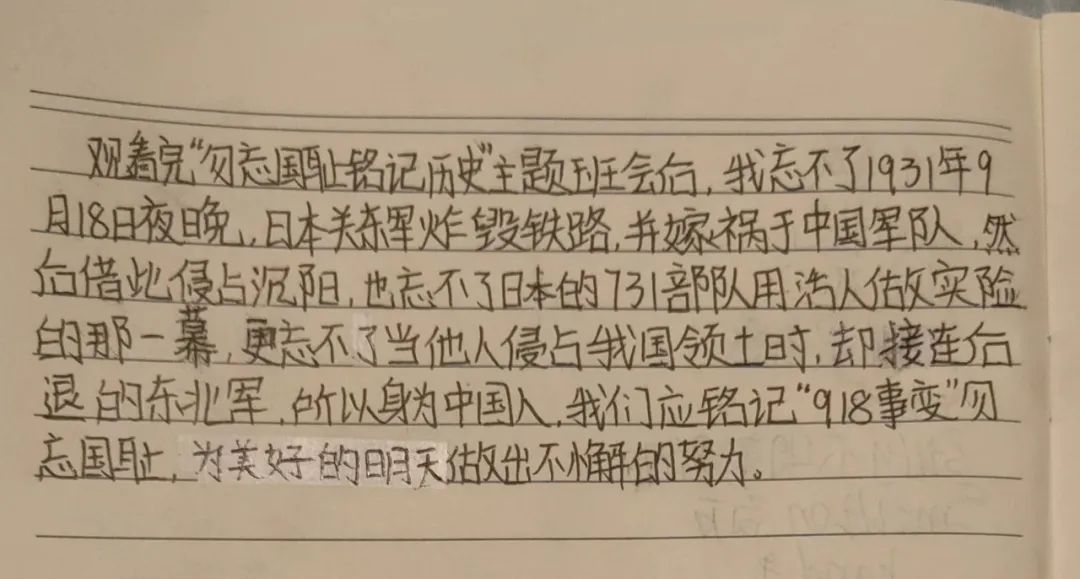 观看完“勿忘国耻铭记历史”主题班会后，我忘不了1931年9
月18日夜晚，日本关东军炸毁铁路，并嫁祸于中国军队，然
后借此侵占沉阳，也忘不了日本的731部队用活人做实险
的那一幕，更忘不了当他人侵占我国领土时，却接连后
退的东北军，所以身为中国人，我们应铭记“918事变”勿
忘国耻，为美好的明天做出不懈的努力。